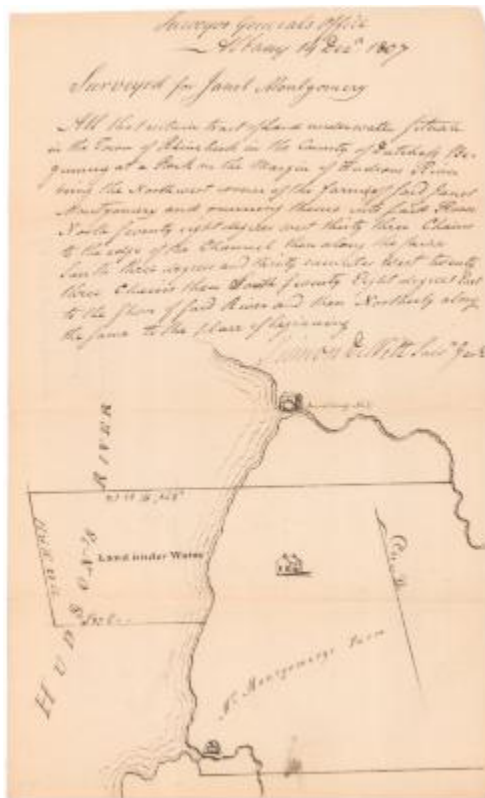 Surveyor Generals Office
Albany 14 Decr. 1807
Surveyed for Janet Montgomery
All that certain tract of Land underwater Situate
in the Town of Rhinebeck in the County of Dutchess Be-
ginning at a Rock on the Margin of Hudsons River
being the Northwest corner of the Farm of said Janet
Montgomery and running thence into said River
North Seventy eight degrees west thirty three Chains
to the edge of the Channel then along the same
South three degrees and thirty minutes West twenty
three Chains then South Seventy Eight degrees East
to the Shore of said River and then Northerly along
the same to the place of beginning
Simeon DeWitt Survr. Genl.
HUDSON'S RIVER
Land under Water
Mrs. Montgomerys Farm